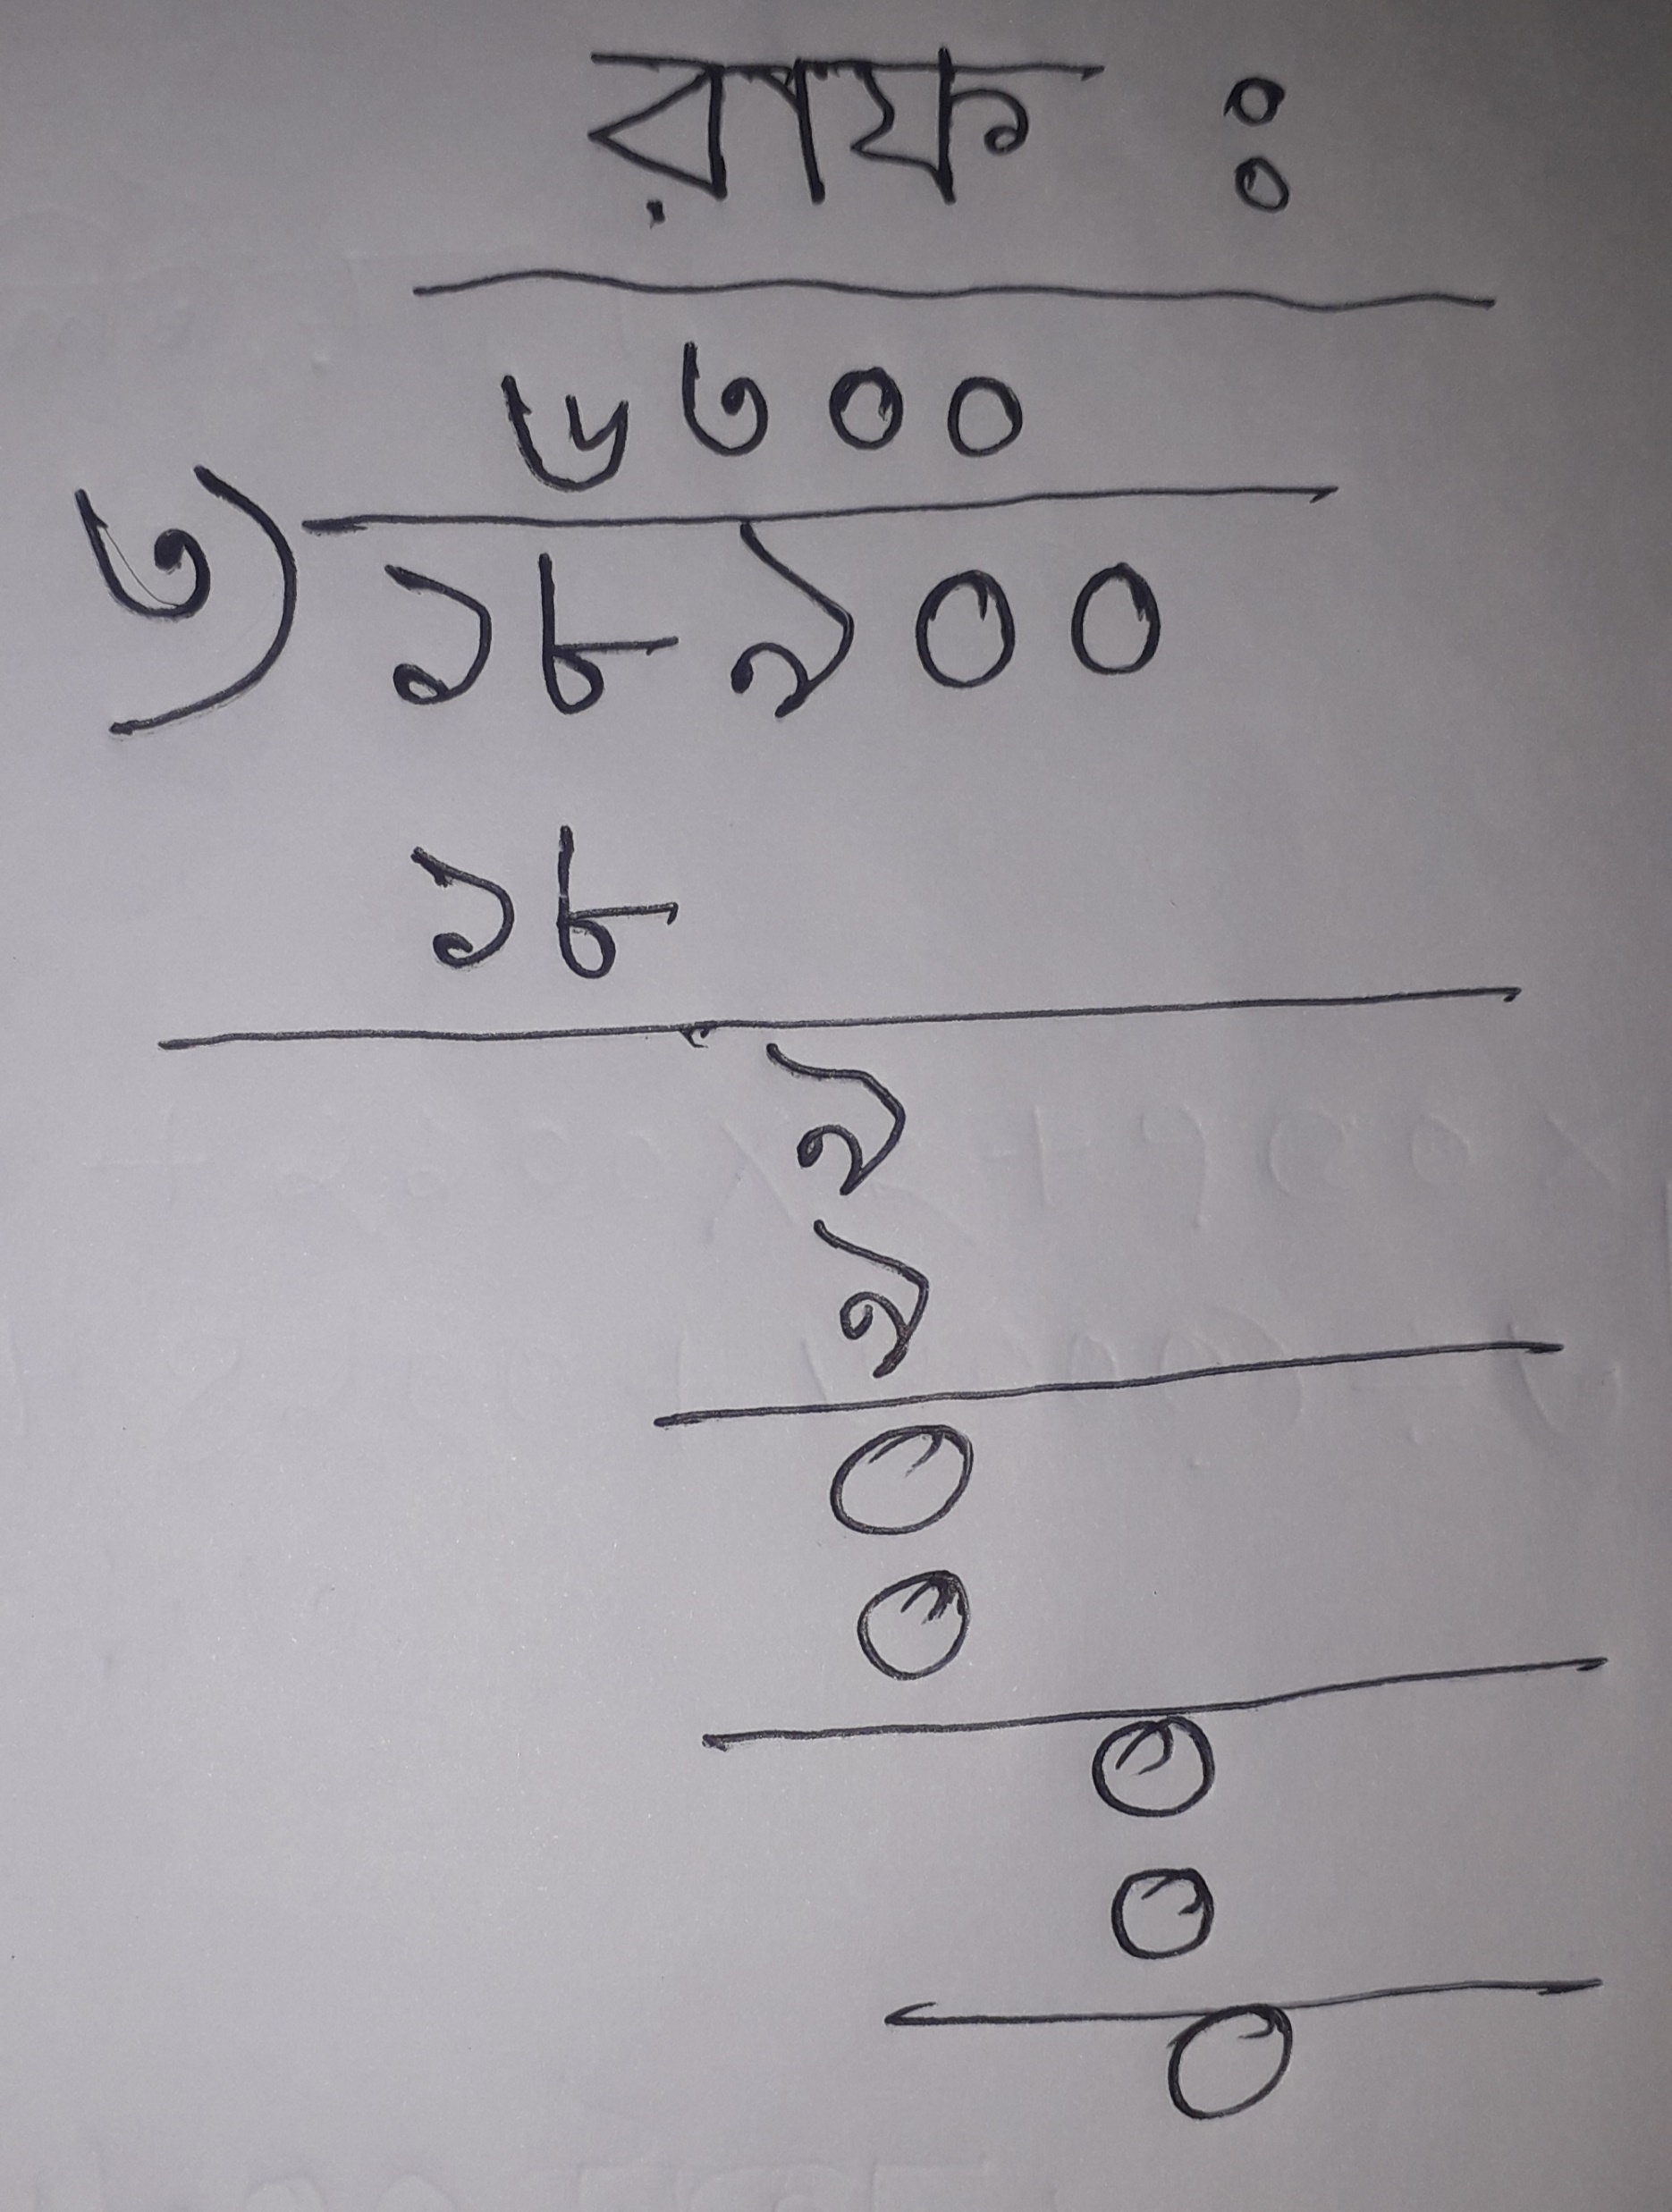 রাফ :
৬৩০০
৩) ১৮৯০০
১৮
৯
৯
০
০
০
০
০